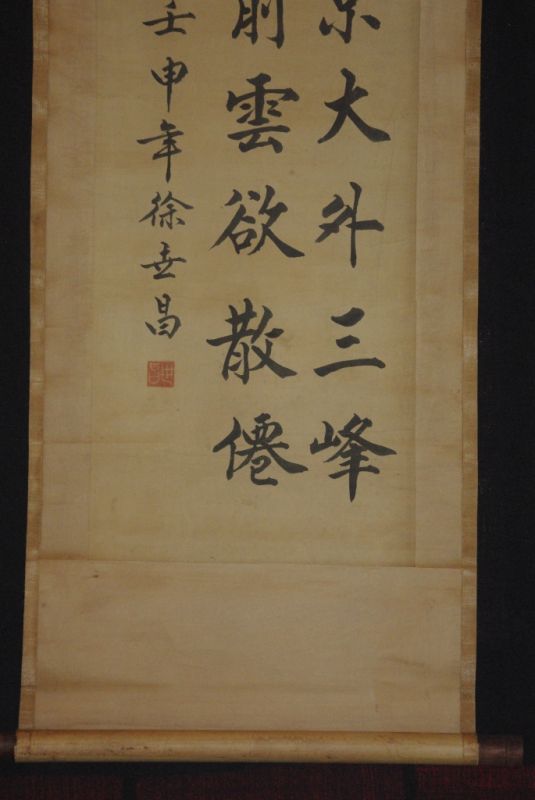 京大外三峰
前雲欲散僊
壬申年徐世昌